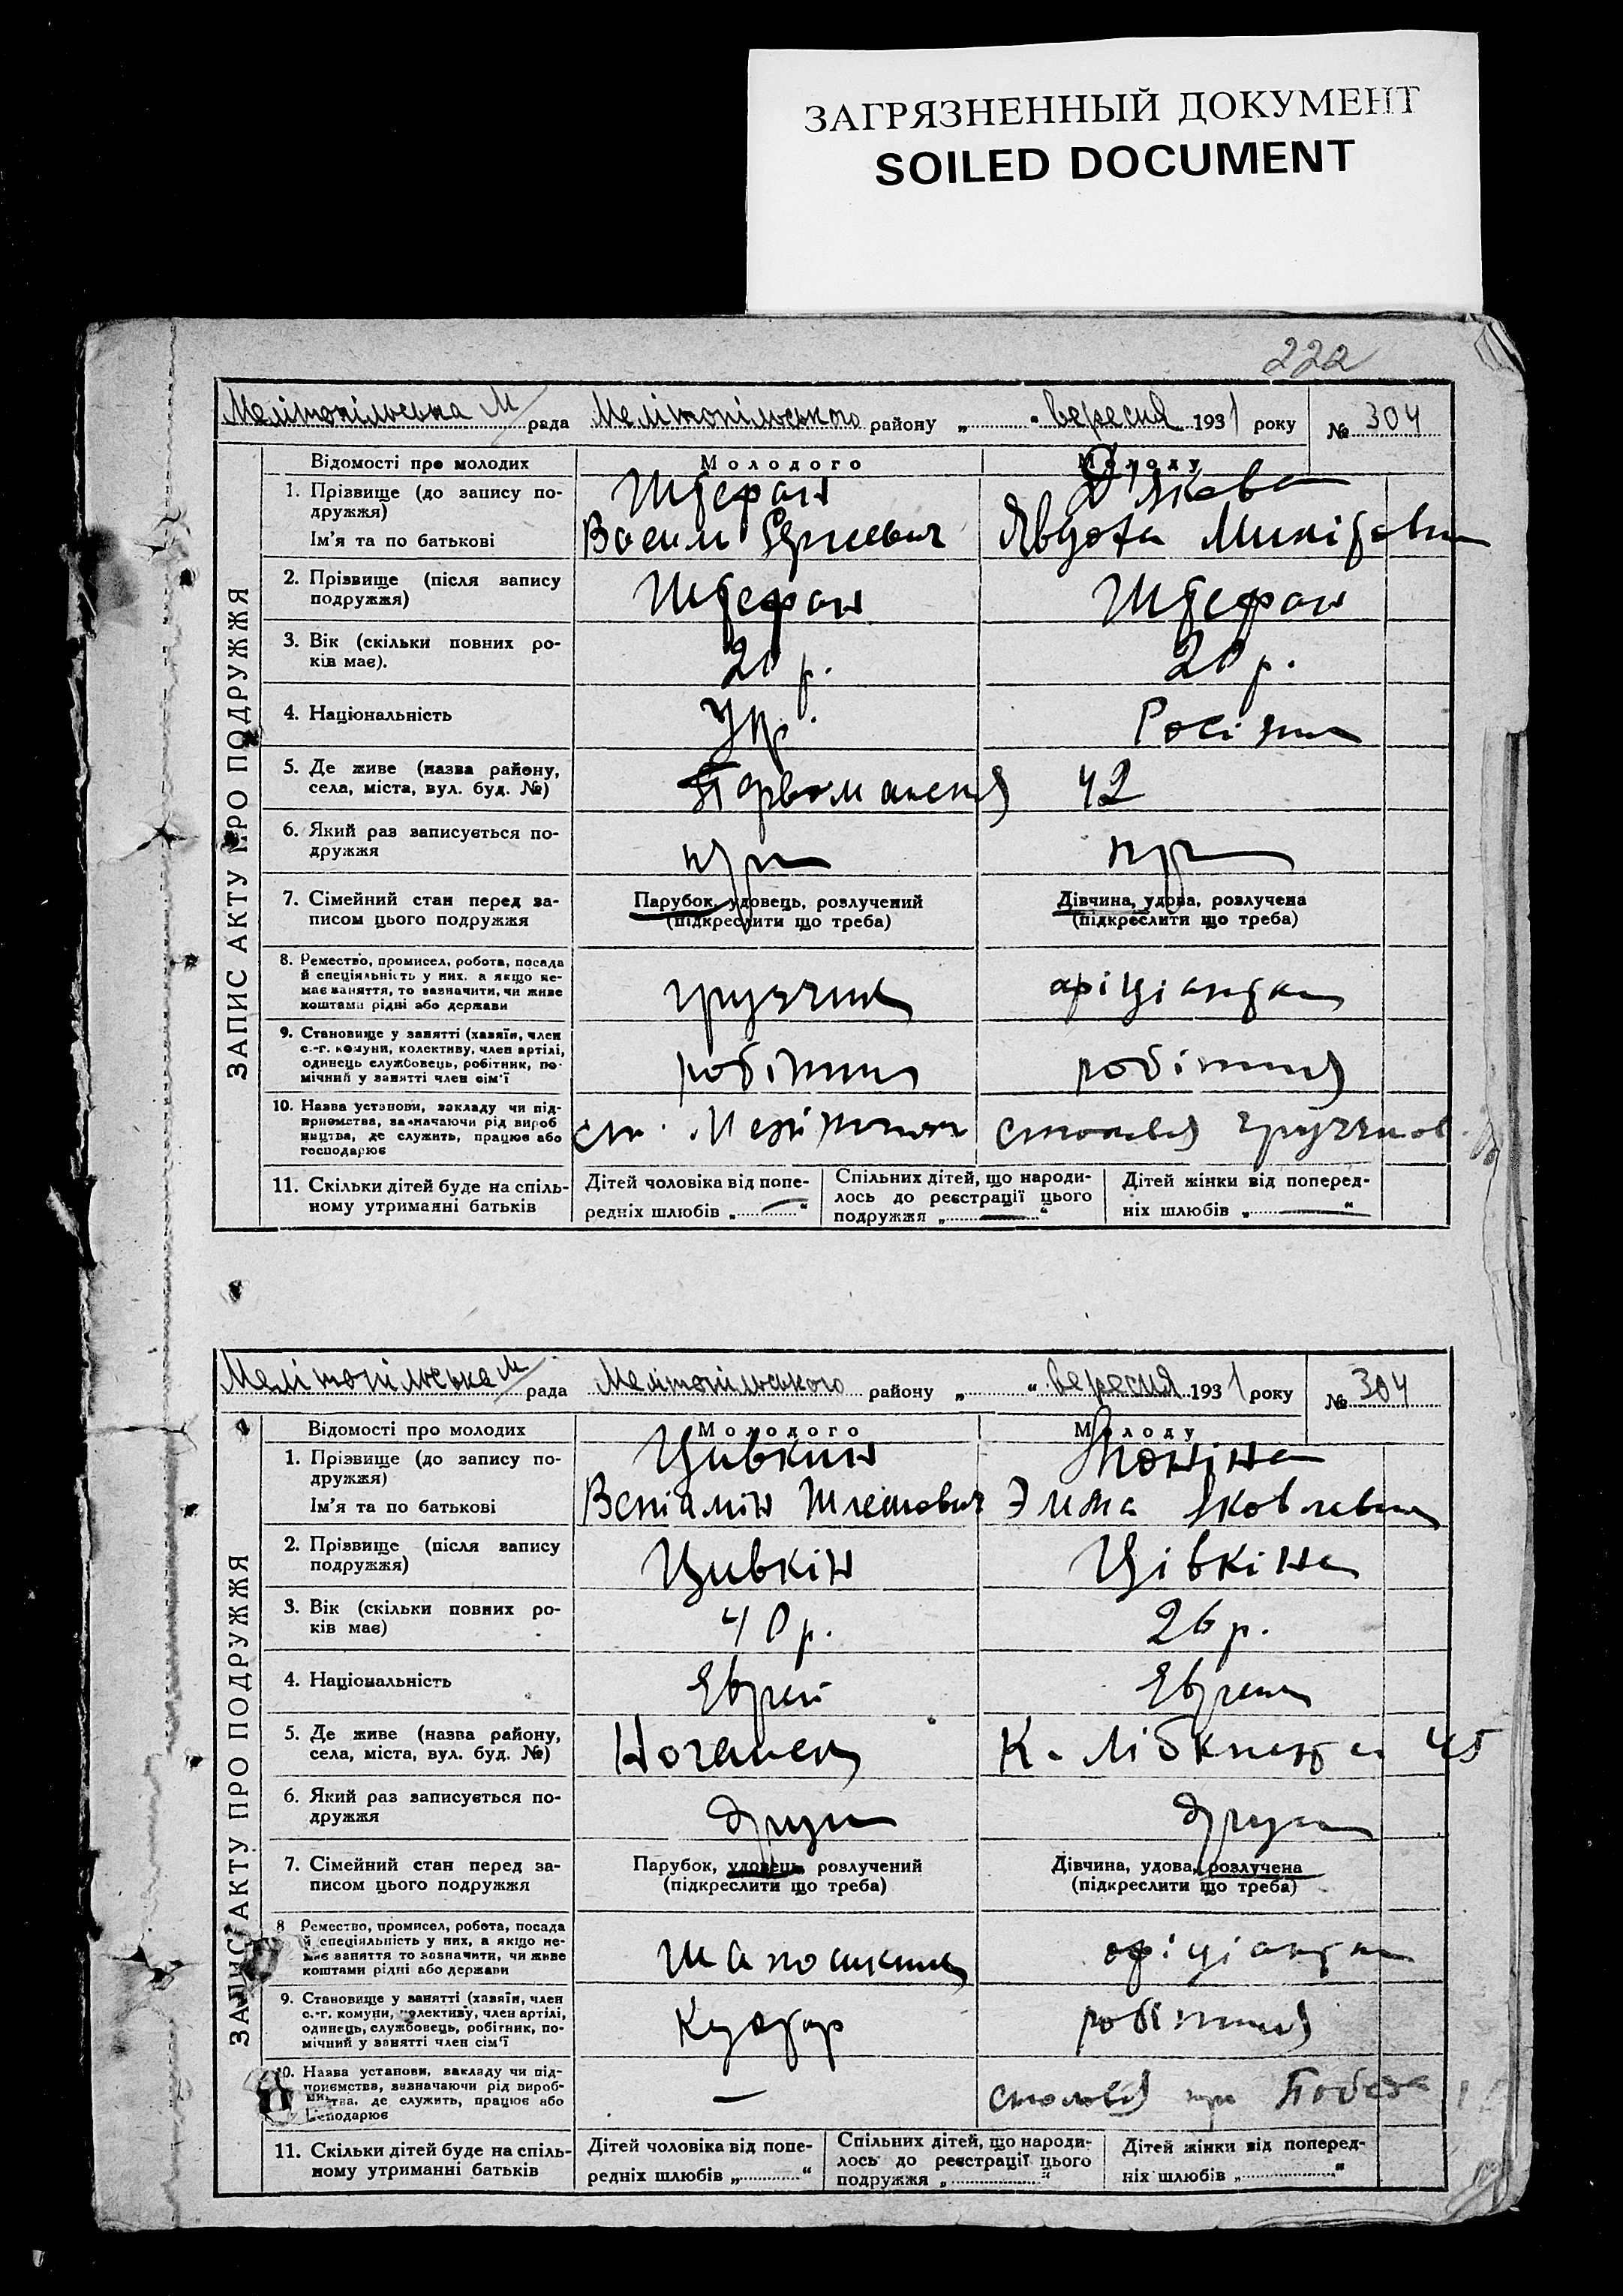 ЗАГРЯЗНЕННЫЙ ДОКУМЕНТ
SOILED DOCUMENT
222
Мелітопільська М рада Мелітопільського району „ “ вересня 1931 року № 304
ЗАПИС АКТУ ПРО ПОДРУЖЖЯ
Відомості про молодих Молодого Молоду
1. Прізвище (до запису по-
дружжя)
Штефан
Ім’я та по батькові
Явдоха
2. Прізвище (після запису
подружжя)
Штефан Штефан
3. Вік (скільки повних ро-
ків має).
20 р. 20 р.
4. Національність
Укр. Росіянка
5. Де живе (назва району,
села, міста, вул. буд. №)
Первоманська 42
6. Який раз записується по-
дружжя
7. Сімейний стан перед за-
писом цього подружжя
Парубок, удовець, розлучений
(підкреслити що треба)
Дівчина, удова, розлучена
(підкреслити що треба)
8. Ремество, промисел, робота, посада
й спеціяльність у них, а якщо не-
має заняття, то зазначити, чи живе
коштами рідні або держави
грузчик офіціантка
9. Становище у занятті (хазяїн, член
с.-г. комуни, колективу, член артілі,
одинець службовець, робітник, по-
мічний у занятті член сім’ї
робітник робітниця
10. Назва установи, закладу чи під-
приємства, зазначаючи рід вироб
ництва, де служить, працює або
господарює
ст. Мелітополь столовая грузчиков
11. Скільки дітей буде на спіль-
ному утриманні батьків
Дітей чоловіка від попе-
редніх шлюбів „ — “
Спільних дітей, що народи-
лось до реєстрації цього
подружжя „ — “
Дітей жінки від поперед-
ніх шлюбів „ — “
Мелітопільська М рада Мелітопільського району „ “ вересня 1931 року № 304
ЗАПИС АКТУ ПРО ПОДРУЖЖЯ
Відомості про молодих Молодого Молоду
1. Прізвище (до запису по-
дружжя)
Цивкин
Ім’я та по батькові
Веніамін Яковлевна
2. Прізвище (після запису
подружжя)
Цивкін Цівкіна
3. Вік (скільки повних ро-
ків має)
40 р. 26 р.
4. Національність
Еврей Еврейка
5. Де живе (назва району,
села, міста, вул. буд. №)
К. Лібкнехта 45
6. Який раз записується по-
дружжя
други други
7. Сімейний стан перед за-
писом цього подружжя
Парубок, удовець, розлучений
(підкреслити що треба)
Дівчина, удова, розлучена
(підкреслити що треба)
8 Ремество, промисел, робота, посада
й спеціяльність у них, а якщо не-
має заняття то зазначити, чи живе
коштами рідні або держави
шапошник офіціантка
9. Становище у занятті (хазяїн, член
с.-г. комуни, колективу, член артілі,
одинець, службовець, робітник, по-
мічний у занятті член сім’ї
Кустар робітниця
10. Назва установи, закладу чи під-
приємства, зазначаючи рід вироб-
ництва, де служить, працює або
господарює
— столовая при
11. Скільки дітей буде на спіль-
ному утриманні батьків
Дітей чоловіка від попе-
редніх шлюбів „ “
Спільних дітей, що народи-
лось до реєстрації цього
подружжя „ “
Дітей жінки від поперед-
ніх шлюбів „ “